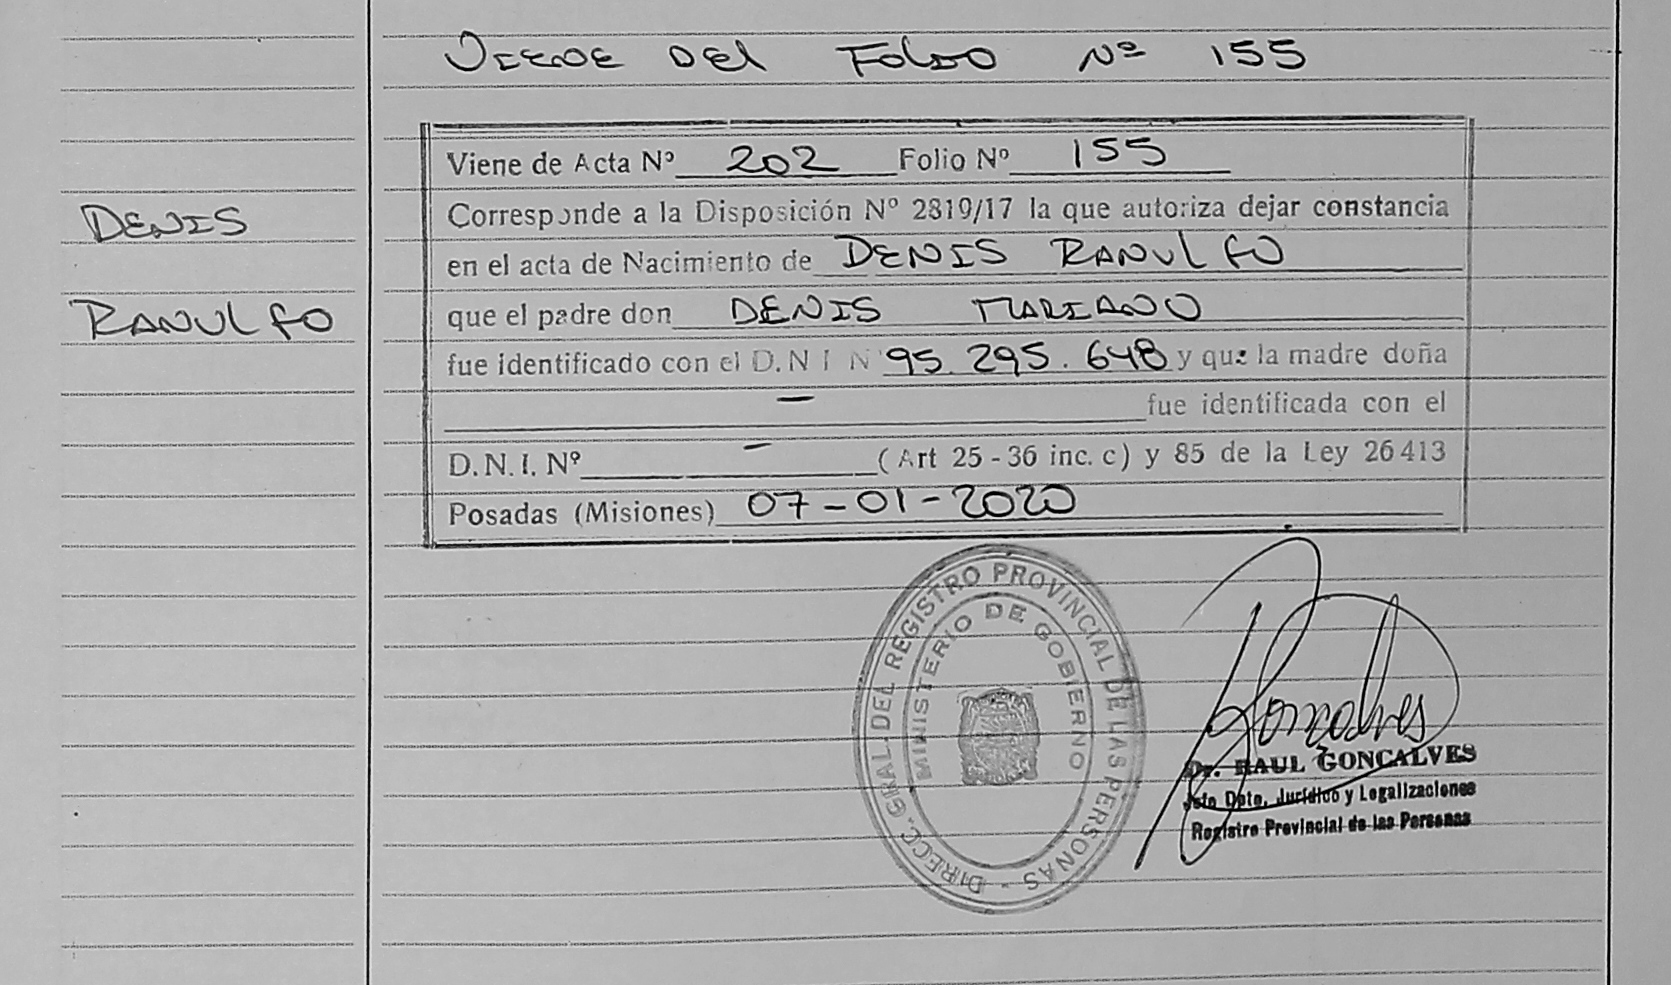 Viene del Folio Nº 155
Viene de Acta Nº 202 Folio Nº 155
Corresponde a la Disposición Nº 2819/17 la que autoriza dejar constancia
DENIS
en el acta de Nacimiento de DENIS RANULFO
que el padre don DENIS MARIANO
RANULFO
fue identificado con el D.N I N° 95.295.648 y que la madre doña
— fue identificada con el
D.N.I. Nº — (Art 25-36 inc. c) y 85 de la Ley 26413
Posadas (Misiones) 07-01-2020
DIRECC. GRAL. DEL REGISTRO PROVINCIAL DE LAS PERSONAS -
MINISTERIO DE GOBIERNO
Goncalves
Dr. RAUL GONCALVES
Jefe Dpto. Jurídico y Legalizaciones
Registro Provincial de las Personas